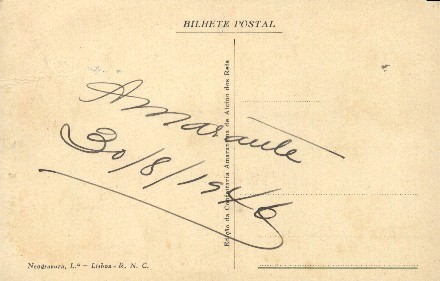 BILHETE POSTAL
Amarante
30/8/1946
Edição da Confeitaria Amarantina de Alcino dos Reis
Neogravura, L.ª - Lisboa - R. N. C.